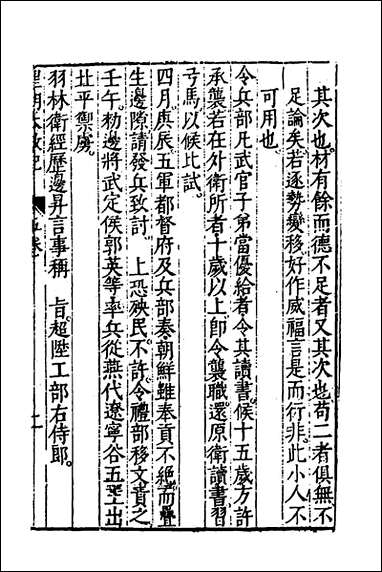 其次也。材有餘而德不足者又其次也。苟二者俱無不
足論矣。若逐勢變移好作威福言是而行非。此小人不
可用也。
令兵部凡武官子弟當優給者令其讀書。候十五歲方許
承襲若在外衛所者十歲以上即令襲職還原衛讀書習
弓馬以候比試。
四月庚辰。五軍都督府及兵部奏朝鮮雖奉貢不絕而疊
生邊隙請發兵致討。 上恐殃民。不許。令禮部移文責之
壬午。勑邊將武定侯郭英等率兵從燕代遼寧谷五王出
北平禦虜。
羽林衛經歷邊昇言事稱 旨。超陞工部右侍郎。
皇朝大政記 五卷 二